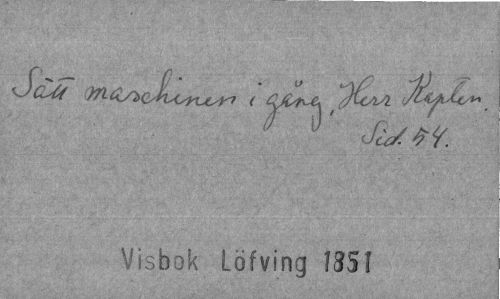 Sätt maschinen i gång, Herr Kapten.
Sid. 54.
Visbok Löfving 1851